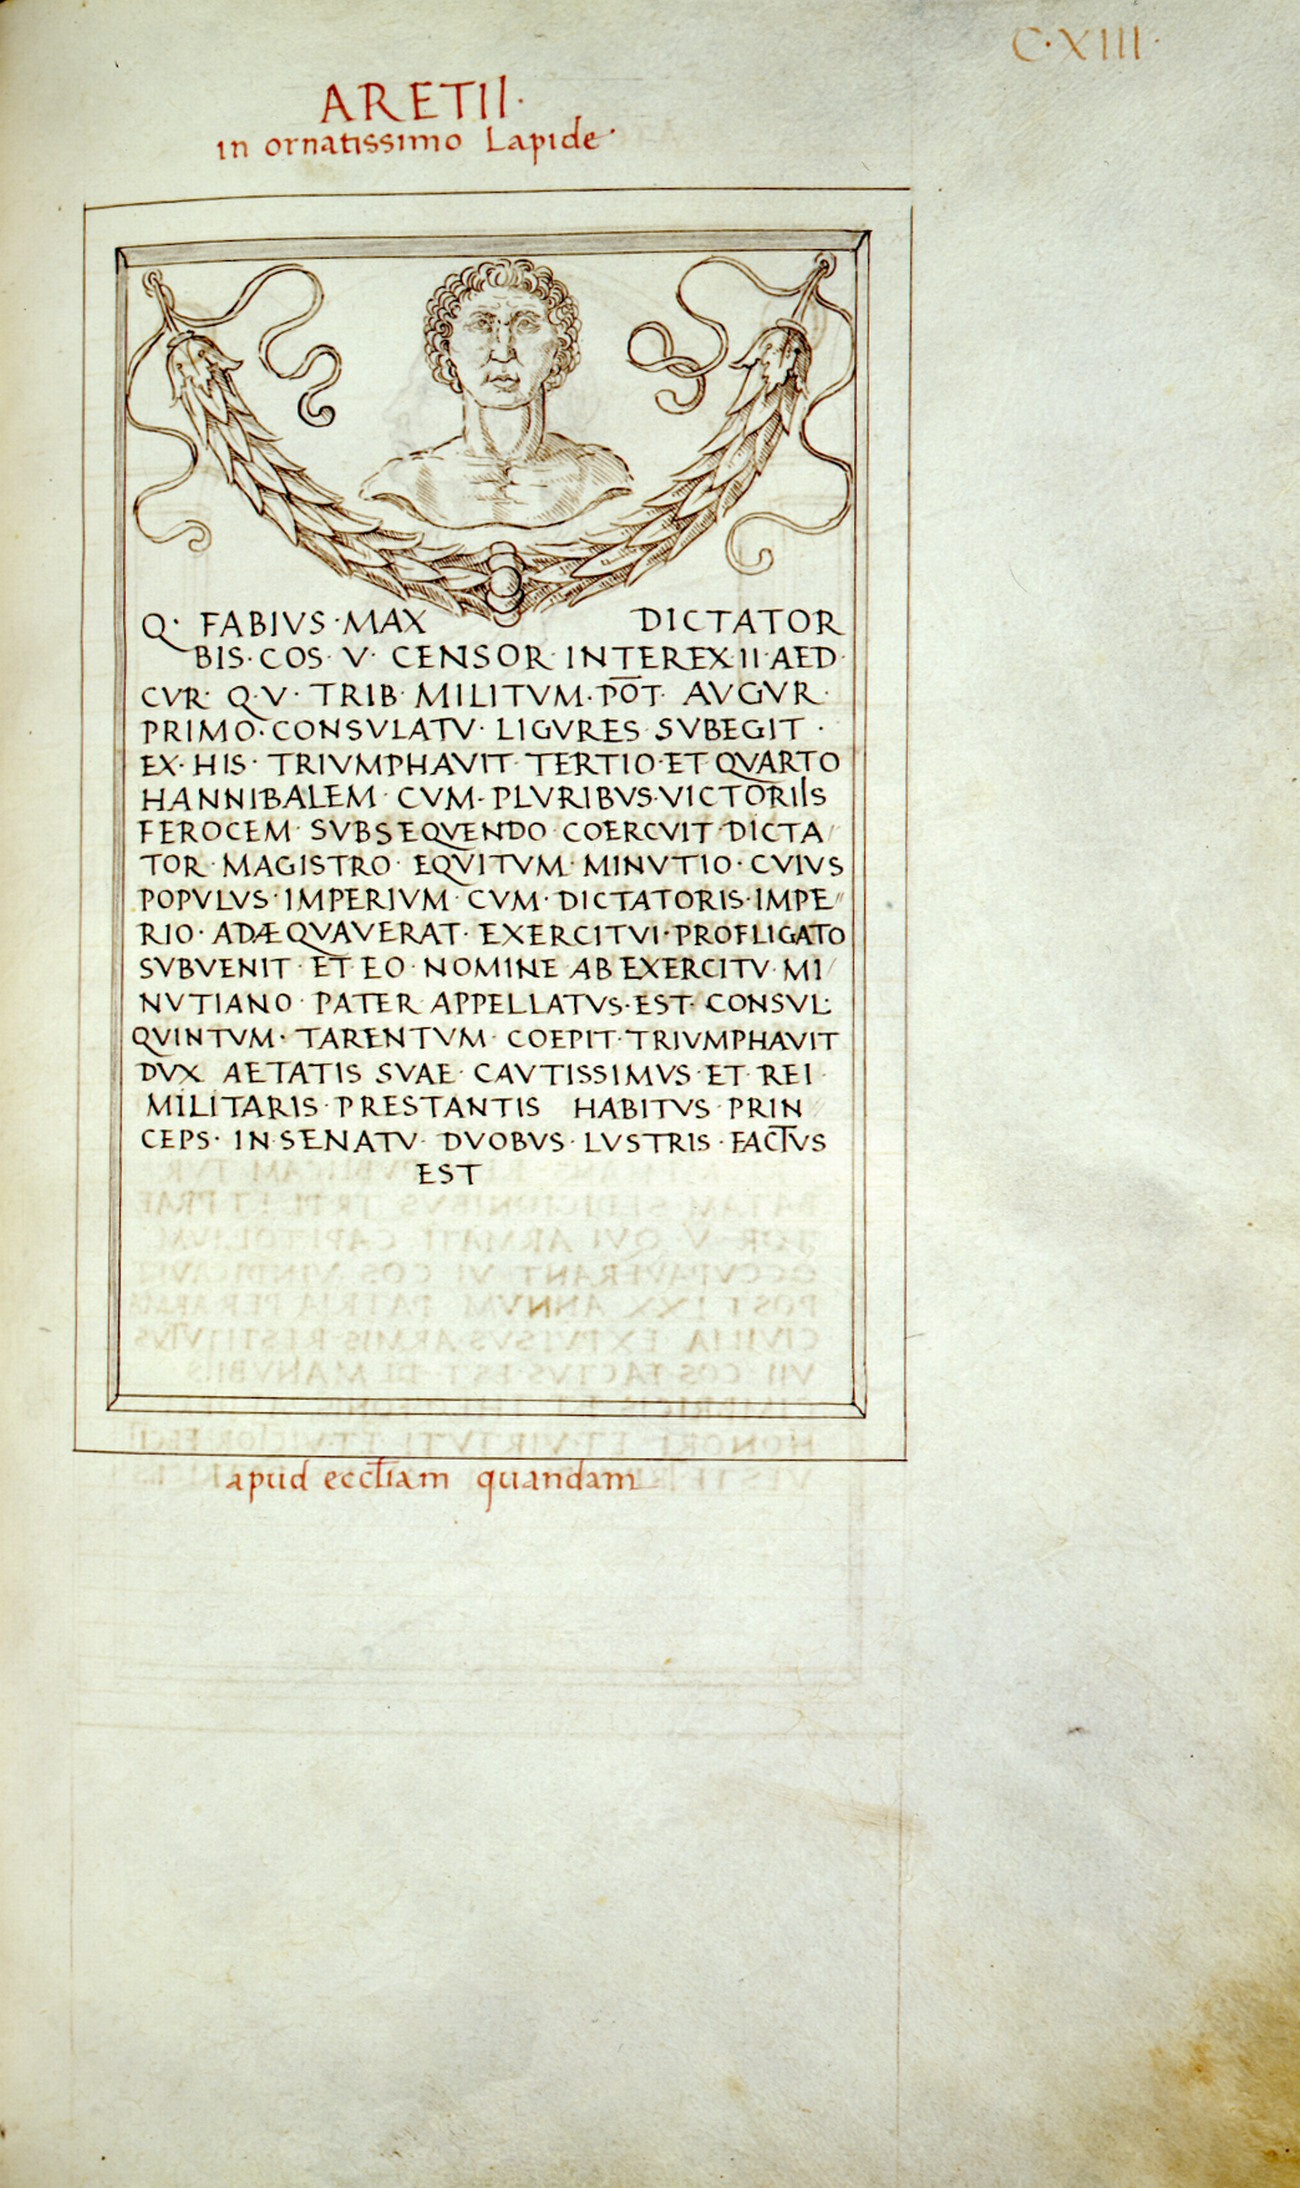 C·XIII·
ARETII·
in ornatissimo Lapide·
Q· FABIVS·MAX DICTATOR
BIS·COS·V· CENSOR·INTEREX·II·AED·
CVR· Q·V· TRIB·MILITVM·PŌT· AVGVR·
PRIMO·CONSVLATV·LIGVRES·SVBEGIT·
EX·HIS· TRIVMPHAVIT·TERTIO·ET QVARTO
HANNIBALEM·CVM·PLVRIBVS·VICTORIIS
FEROCEM·SVBSEQVENDO·COERCVIT·DICTA/
TOR·MAGISTRO·EQVITVM·MINVTIO·CVIVS
POPVLVS·IMPERIVM·CVM·DICTATORIS·IMPE//
RIO·ADÆQVAVERAT·EXERCITVI·PROFLIGATO
SVBVENIT·ET EO·NOMINE AB EXERCITV·MI/
NVTIANO·PATER APPELLATVS·EST·CONSVL·
QVINTVM·TARENTVM·COEPIT·TRIVMPHAVIT
DVX AETATIS SVAE·CAVTISSIMVS·ET·REI·
MILITARIS·PRESTANTIS HABITVS·PRIN
CEPS·IN·SENATV· DVOBVS·LVSTRIS·FACTVS
EST
apud eccl̄iam quandam